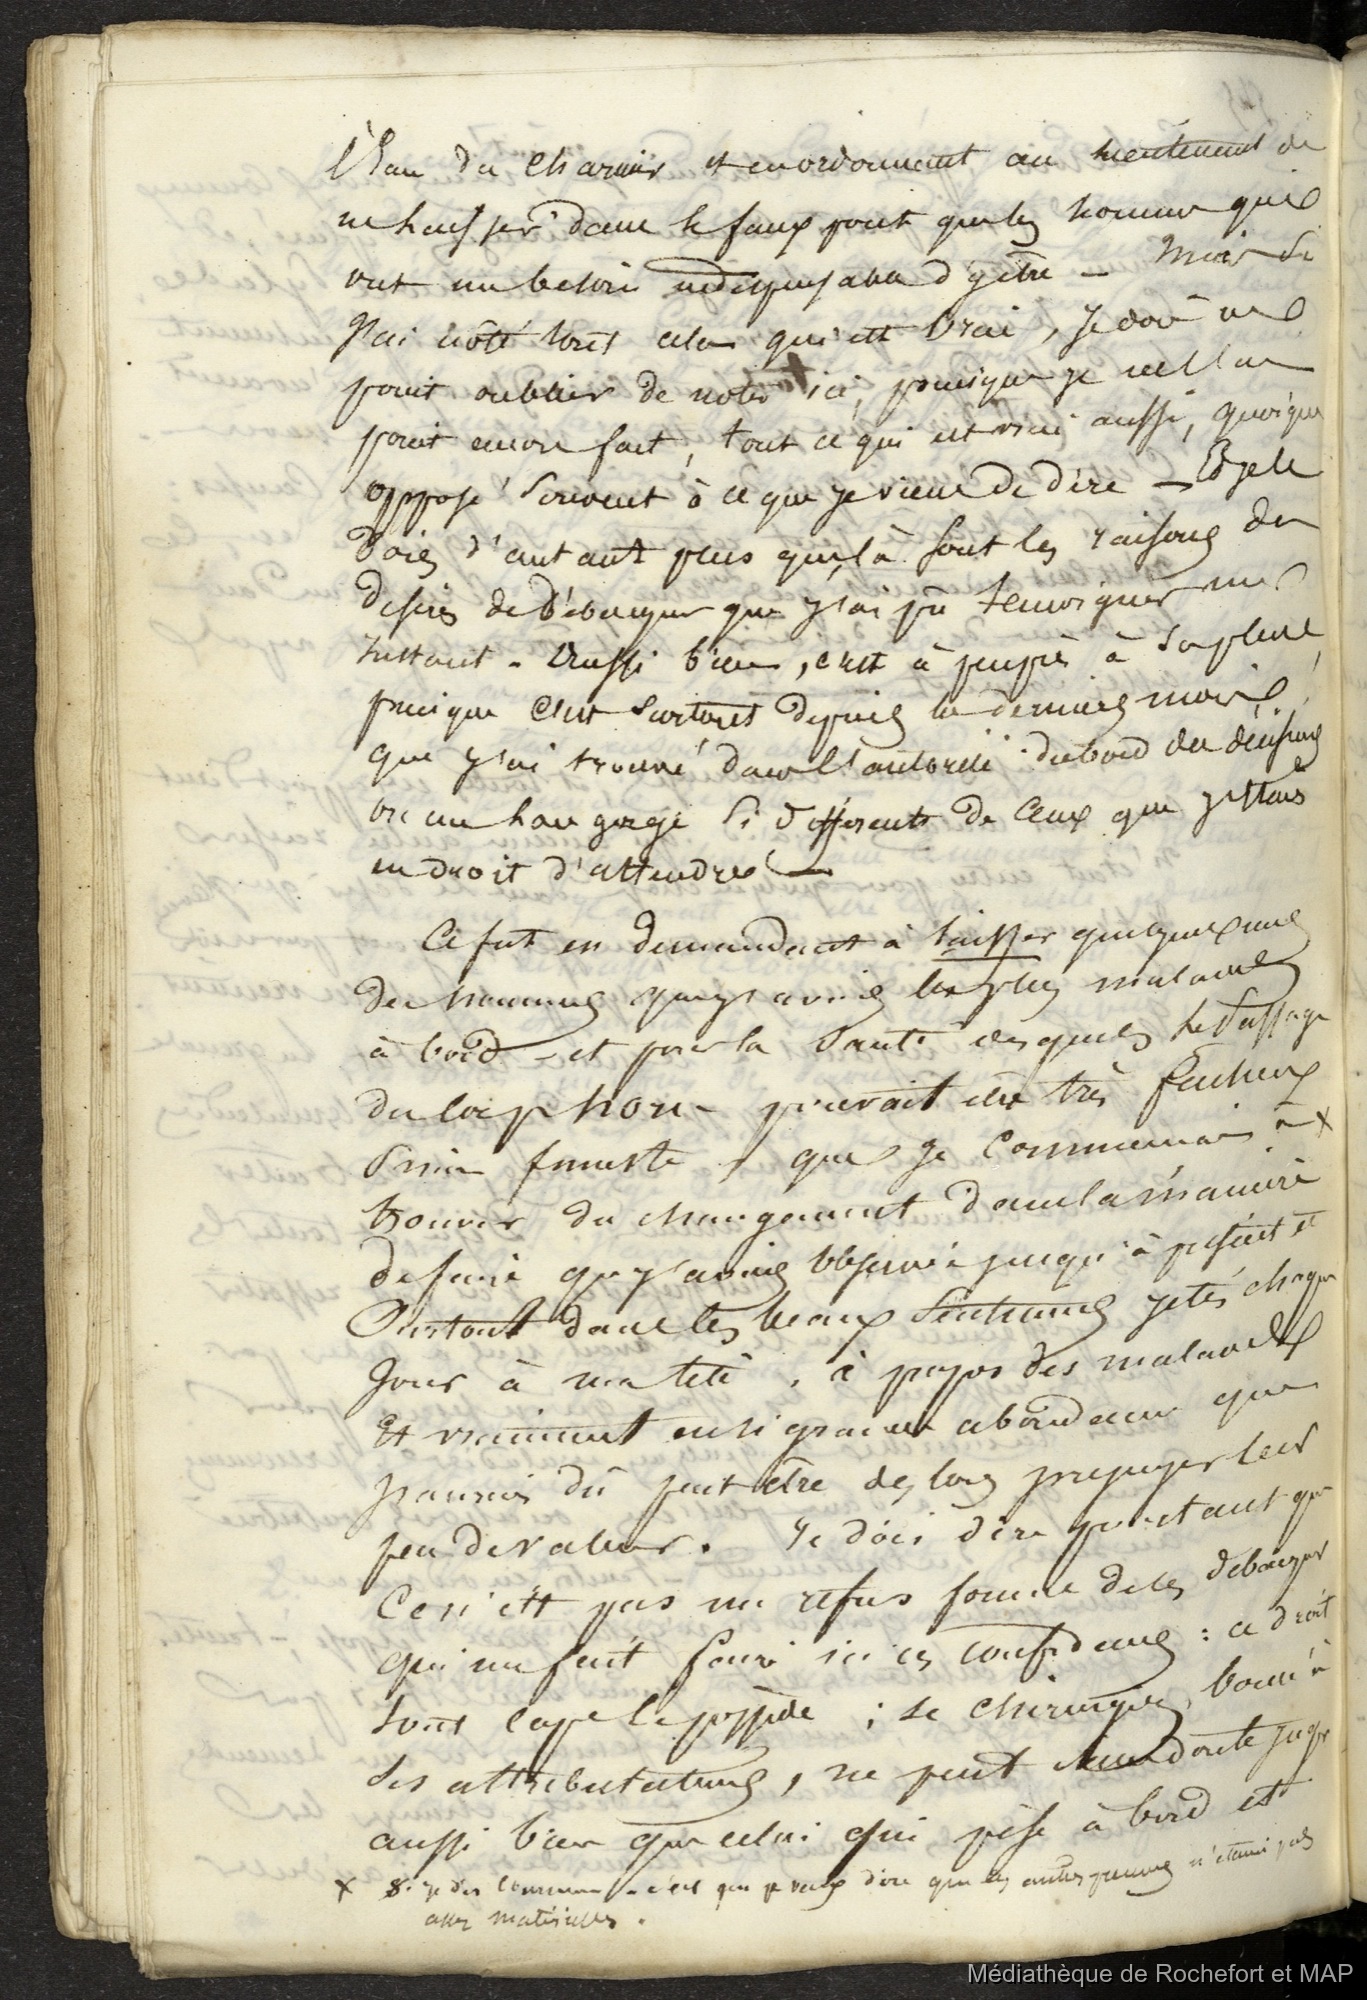 l'Eau du charnier et en ordonnant au lieutenant de
ne laisser dans le faux pont que les hommes qui
ont un besoin indispensable d'y être - Mais si
J'ai noté tout cela qui est vrai, Je dois ne
point oublier de noter ici, puisque je ne l'ai
point encore fait, tout ce qui est vrai aussi, quoique
opposé souvent à ce que je viens de dire - Et je le
Dois d'autant plus que là sont les raisons des
desirs de débarquer que j'ai pu temoigner un
Instant - Aussi bien, c'est à peu près à sa place,
puisque c'est surtout depuis le dernier mois
que j'ai trouvé dans l'autorité du bord des décisions
ou un langage si différents de ceux que j'étais
en droit d'attendre -
Ce fut en demandant à laisser quelques uns
des hommes que j'avais les plus malades
à bord - et pour la santé desquels le Passage
du Cap horn - pouvait être très facheux
Sinon funeste, que Je Commençai à x
trouver du changement dans la manière
de faire que j'avais observée jusqu'à présent et
Surtout dans les beaux Sentiments jetés chaque
Jour à ma tête, à propos des malades
Et vraiment en si grande abondance que
J'aurais dû peut être dès lors préjuger leur
peu de valeur. Je dois dire pourtant que
Ce n'est pas un refus formel de les débarquer
qui me fait faire ici ces confidences : ce droit
tout Cape le possède ; le chirurgien, borné à
Ses attributations, ne peut sans doute juger
aussi bien que celui qui pèse à bord et
x Si je dis Commençai - c'est que je veux dire que les autres preuves n'étaient pas
assez matérielles.
Médiathèque de Rochefort et MAP